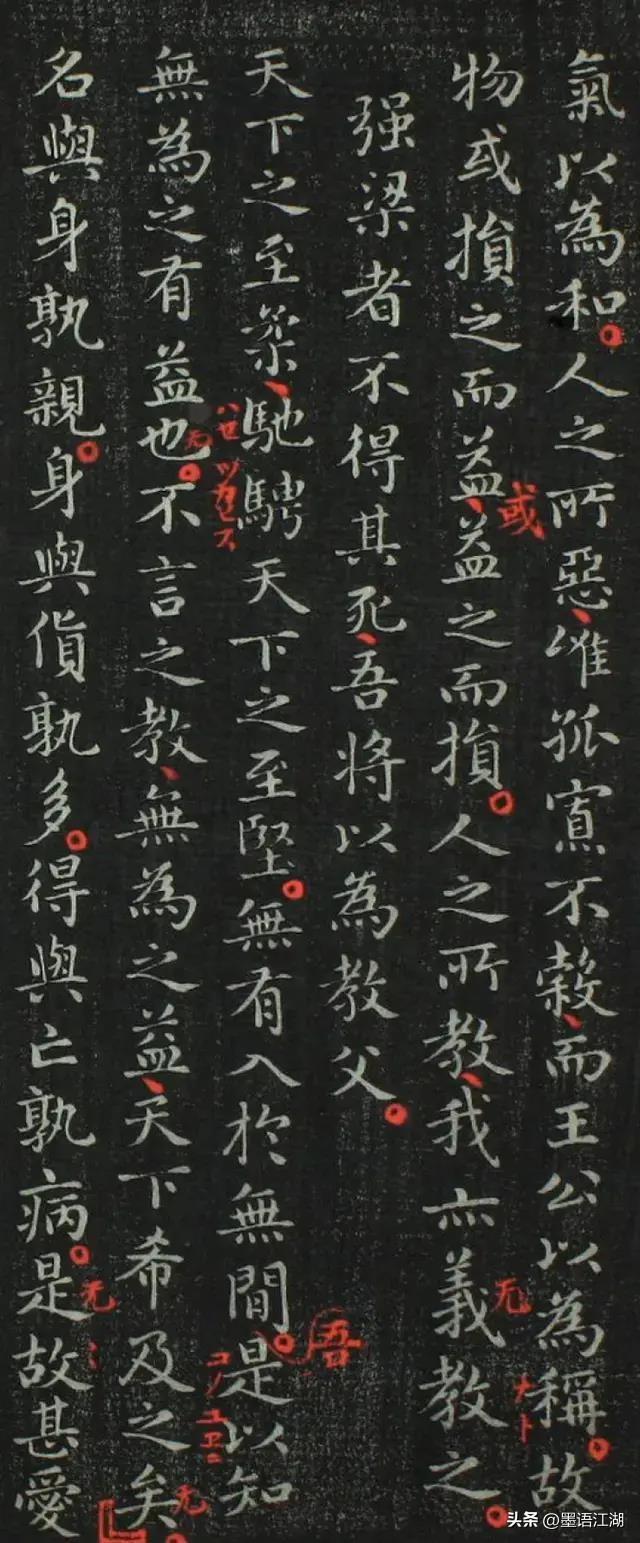 氣以為和人之所惡惟孤寡不穀而王公以為稱故
物或損之而益益之而損人之所教我亦義教之
强梁者不得其死吾將以為教父
天下之至柔馳騁天下之至堅無有入於無間是以知
無為之有益也不言之教無為之益天下希及之矣
名與身孰親身與貨孰多得與亡孰病是故甚愛
或
无
吾
无
无
头条 @墨语江湖